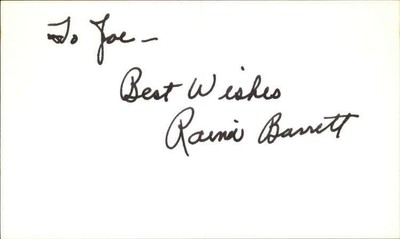 To Joe —
Best Wishes
Raina Barrett